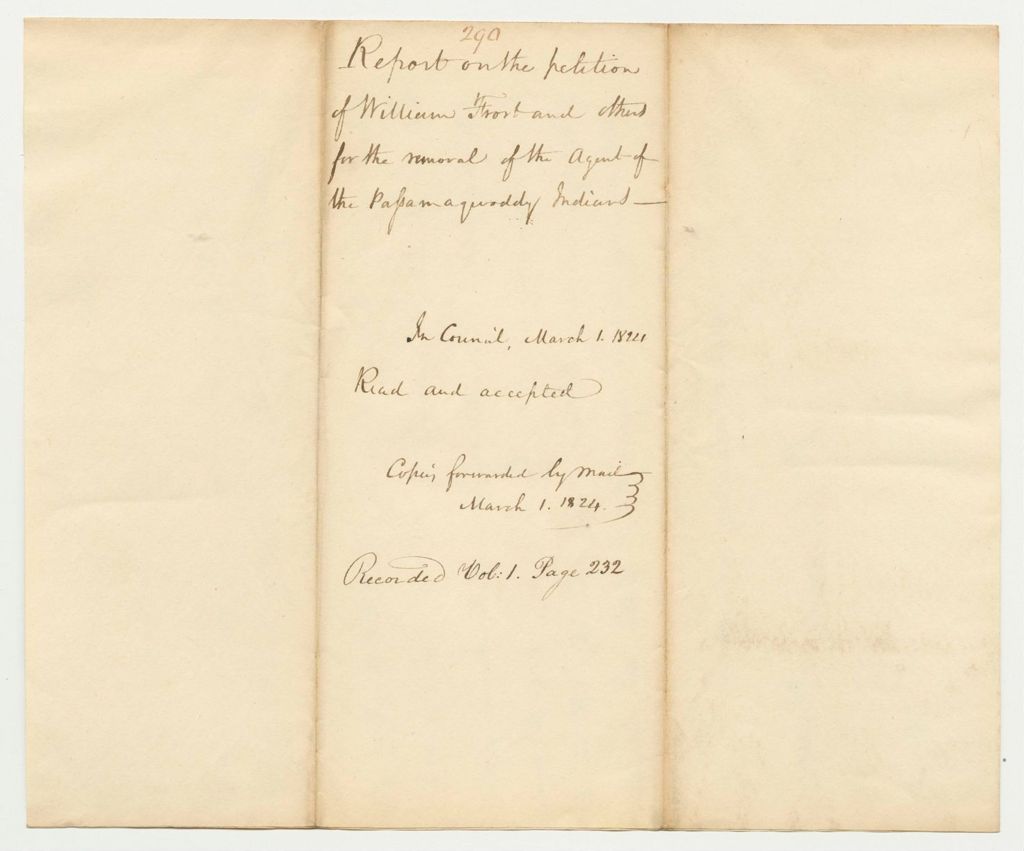 290
Report on the petition
of William Frost and others
for the removal of the Agent of
the Paſsamaquoddy Indians —
In Council, March 1. 1824
Read and accepted
Copies forwarded by mail
March 1. 1824.
Recorded Vol: 1. Page 232